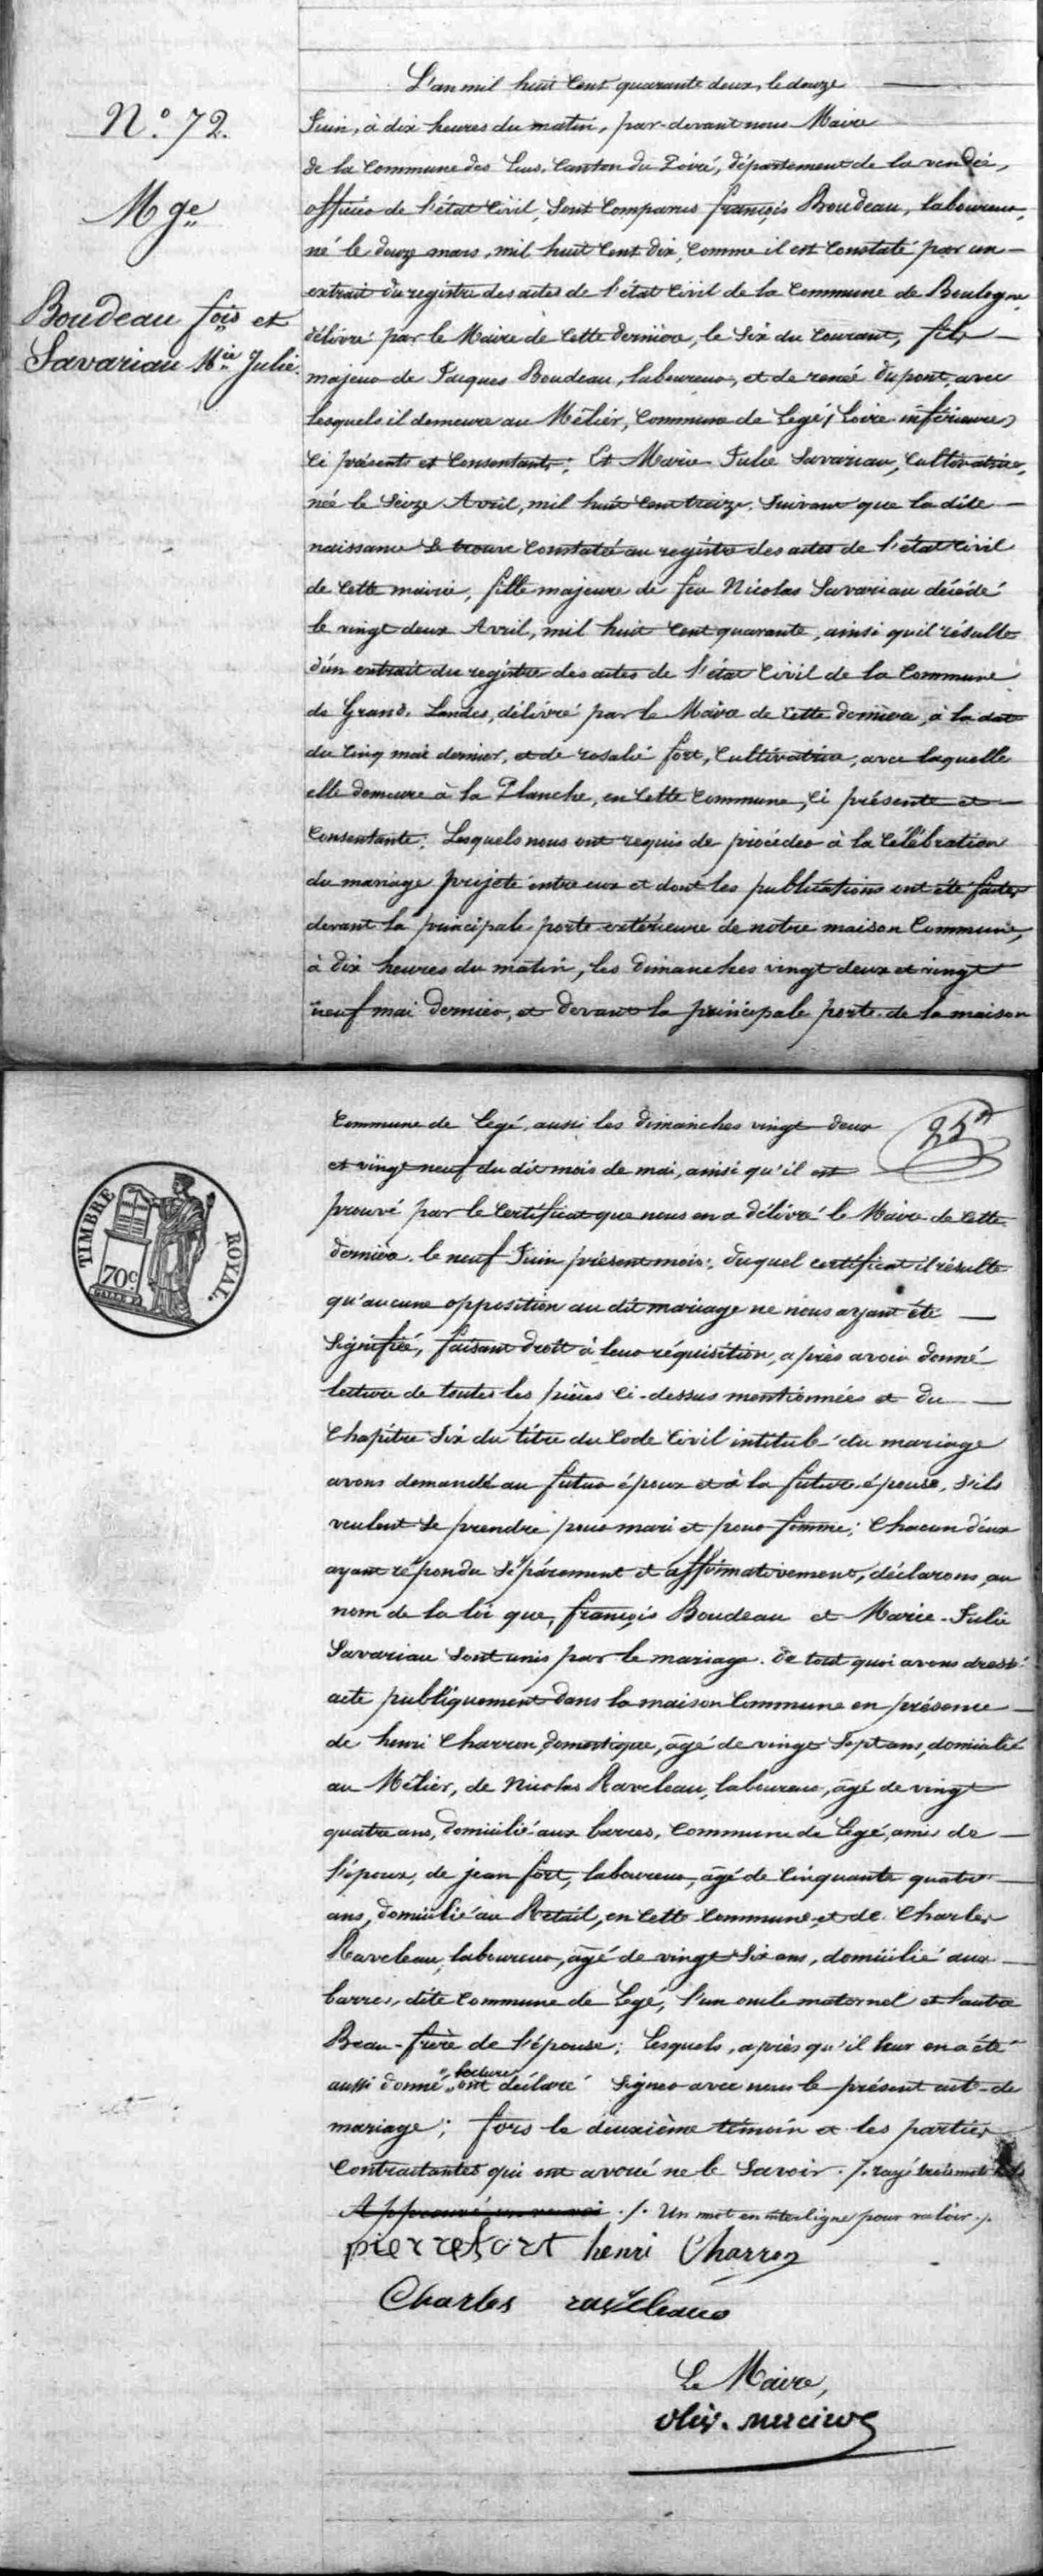 N.° 72.
M ge
Boudeau fois et
Savariau Mie Julie.
L'an mil huit Cent quarante deux, le douze
Juin, à dix heures du matin, par-devant nous Maire
de la Commune des Lucs, Canton du Poiré, département de la vendée,
officier de l'état Civil, Sont Comparus françois Boudeau, laboureur,
né le douze mars, mil huit Cent dix, Comme il est Constaté par un
extrait du registre des actes de l'état Civil de la Commune de Boulogne,
délivré par le Maire de Cette dernière, le Six du Courant, fils
majeur de Jacques Boudeau, laboureur, et de renée dupont, avec
lesquels il demeure au Métier, Commune de Legé (Loire inférieure)
Ci présents et Consentants; Et Marie Julie Savariau, Cultivatrice,
née le Seize Avril, mil huit Cent treize, Suivant que la dite
naissance Se trouve Constatée au registre des actes de l'état Civil
de Cette mairie, fille majeure de feu Nicolas Savariau décédé
le vingt deux Avril, mil huit Cent quarante, ainsi qu'il résulte
d'un extrait du registre des actes de l'état Civil de la Commune
de Grand. Landes, délivré par le Maire de Cette dernière, à la date
du Cinq mai dernier, et de rosalie fort, Cultivatrice, avec laquelle
elle demeure à la Planche, en Cette Commune, Ci présente et
Consentante; Lesquels nous ont requis de procéder à la Célébration
du mariage projeté entre eux et dont les publications ont été faites
devant la principale porte extérieure de notre maison Commune,
à dix heures du matin, les dimanches vingt deux et vingt
neuf mai dernier, et devant la principale porte de la maison
Commune de Legé, aussi les dimanches vingt deux
et vingt neuf du dit mois de mai, ainsi qu'il est
prouvé par le Certificat que nous en a délivré le Maire de Cette
dernière, le neuf Juin présent mois; duquel certificat il résulte
qu'aucune opposition au dit mariage ne nous ayant été
Signifiée, faisant droit à leur réquisition, après avoir donné
lecture de toutes les pièces Ci-dessus mentionnées et du
Chapitre Six du titre du Code Civil intitulé du mariage
avons demandé au futur époux et à la future épouse, S'ils
veulent Se prendre pour mari et pour femme; Chacun d'eux
ayant répondu Séparement et affirmativement, déclarons, au
nom de la loi que, françois Boudeau et Marie-Julie
Savariau Sont unis par le mariage. de tout quoi avons dressé
acte publiquement dans la maison Commune en présence
de henri Charron, domestique, âgé de vingt Sept ans, domicilié
au Métier, de Nicolas Raveleau, laboureur, âgé de vingt
quatre ans, domicilié aux barres, Commune de Legé, amis de
l'époux, de jean fort, laboureur, âgé de Cinquante quatre
ans, domicilié au Retail, en Cette Commune, et de Charles
Raveleau, laboureur, âgé de vingt Six ans, domicilié aux
barres, dite Commune de Legé, l'un oncle maternel et l'autre
Beau-frère de l'épouse; Lesquels, après qu'il leur en a été
aussi donné lecture ont déclaré Signer avec nous le présent acte de
mariage; fors le deuxième témoin et les parties
Contractantes qui ont avoué ne le Savoir ./. rayé trois mots
Approuvé un renvoi ./. Un mot en interligne pour valoir ./.
pierre fort henri Charron
Charles raveleau
Le Maire,
TIMBRE ROYAL.
70c